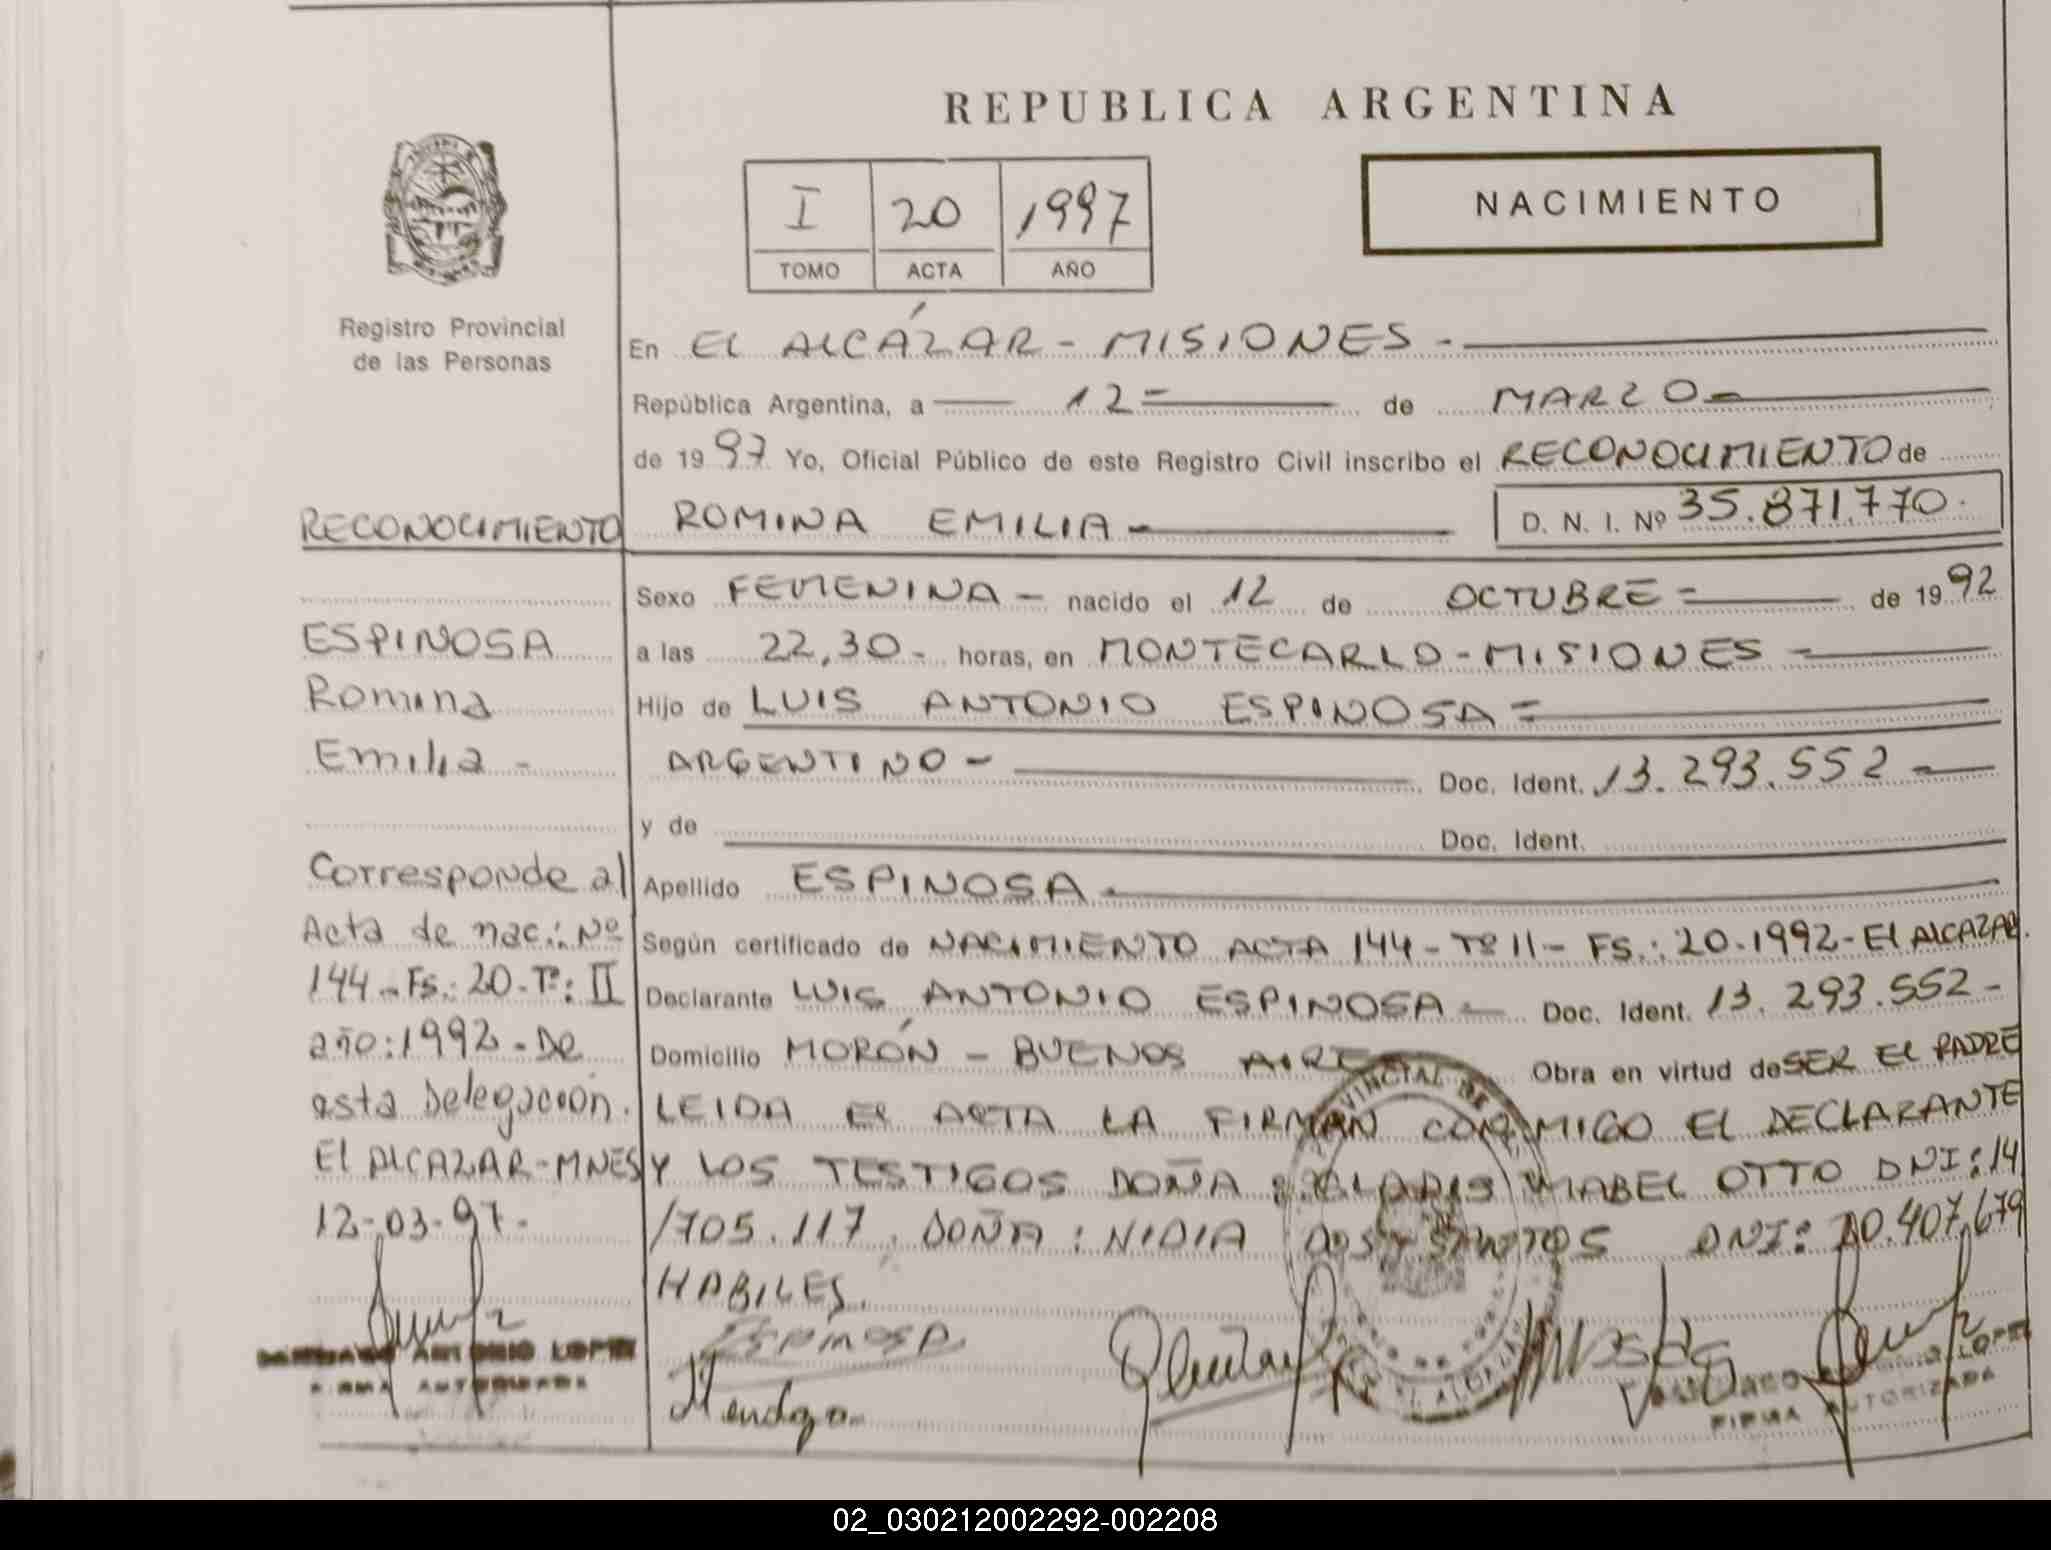 REPUBLICA ARGENTINA
I 20 1997
TOMO ACTA AÑO
NACIMIENTO
Registro Provincial
de las Personas
En EL ALCÁZAR - MISIONES -
República Argentina, a 12 - de MARZO -
de 1997 Yo, Oficial Público de este Registro Civil inscribo el RECONOCIMIENTO de
ROMINA EMILIA - D. N. I. Nº 35.871.770.
Sexo FEMENINA - nacido el 12 de OCTUBRE = de 1992
a las 22,30 - horas, en MONTECARLO - MISIONES -
Hijo de LUIS ANTONIO ESPINOSA =
ARGENTINO - Doc. Ident. 13.293.552 -
y de Doc. Ident.
Apellido ESPINOSA -
Según certificado de NACIMIENTO ACTA 144 - Tº 11 - FS.: 20. 1992 - El ALCAZAR.
Declarante LUIS ANTONIO ESPINOSA - Doc. Ident. 13.293.552 -
Domicilio MORÓN - BUENOS AIRES Obra en virtud de SER EL PADRE
LEIDA EL ACTA LA FIRMAN CONMIGO EL DECLARANTE
Y LOS TESTIGOS DOÑA : GLADIS MABEL OTTO DNI: 14
/705.117. DOÑA : NIDIA DOS SANTOS DNI: 20.407.679
HABILES.
Espinosa
RECONOCIMIENTO
ESPINOSA
Romina
Emilia -
Corresponde al
Acta de nac.: Nº
144 - Fs.: 20 - Tº: II
año: 1992 - De
esta Delegación.
El ALCAZAR - MNES
12-03-97.
ANTONIO LOPEZ
FIRMA AUTORIZADA
FIRMA AUTORIZADA
02_030212002292-002208